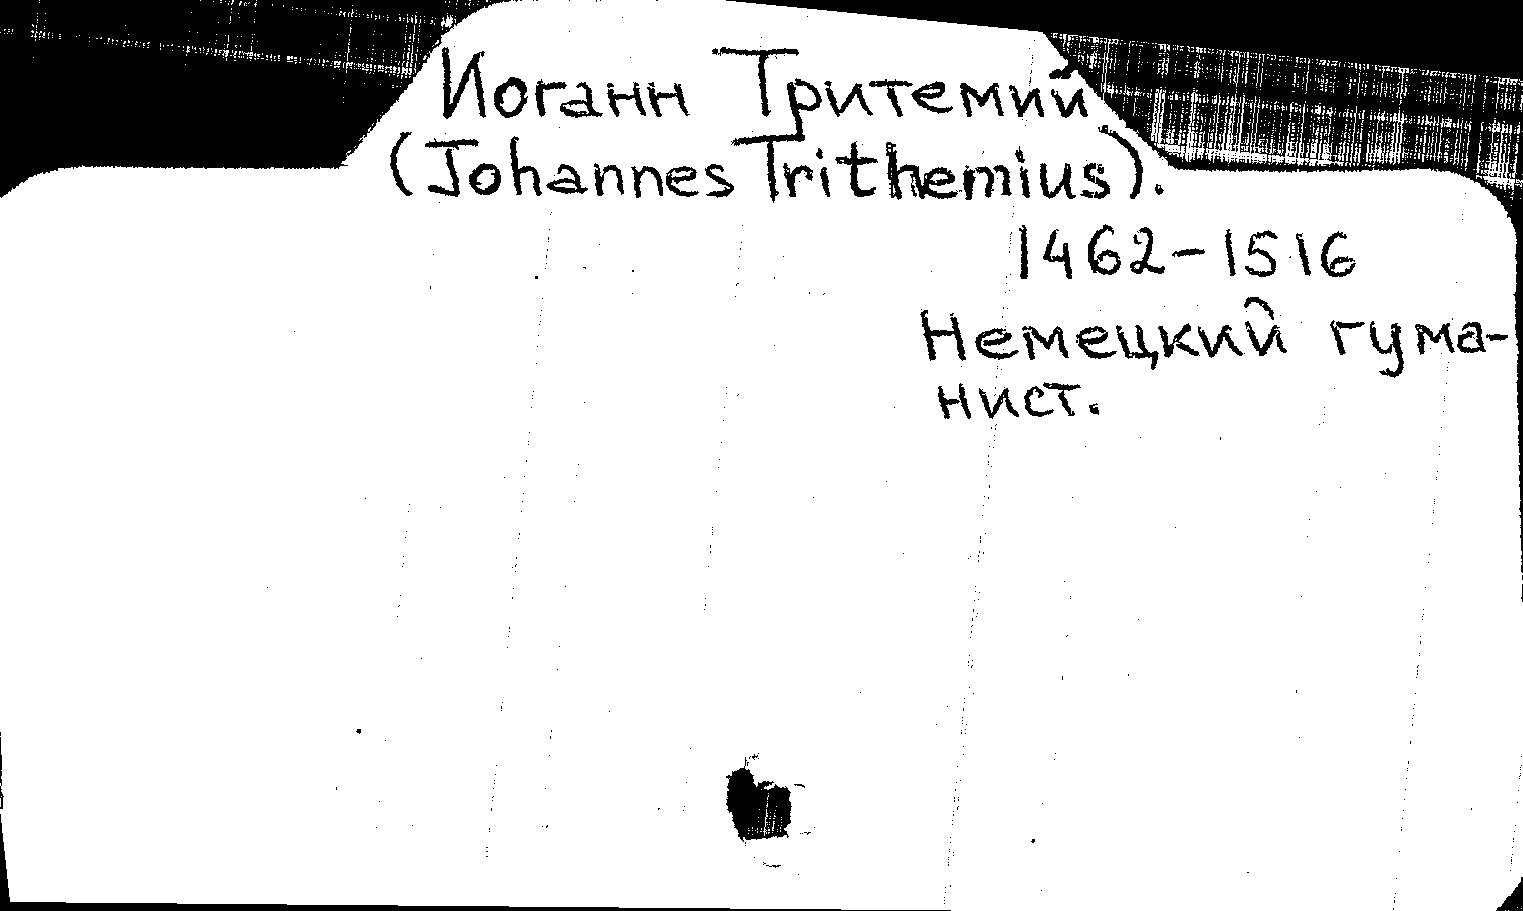 Иоганн Тритемий
(Johannes Trithemius).
1462-1516
Немецкий гума-
нист.